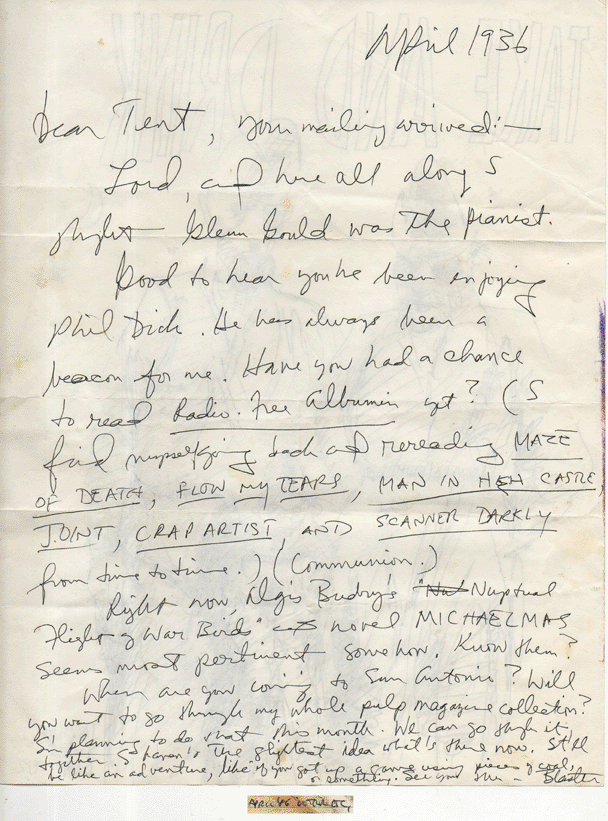 April 1936
Dear Trent, your mailing arrived:—
Lord, and here all along I
thought Glenn Gould was the pianist.
Good to hear you've been enjoying
Phil Dick. He has always been a
beacon for me. Have you had a chance
to read Radio Free Albumin yet? (I
find myself going back and rereading MAZE
OF DEATH, FLOW MY TEARS, MAN IN HIGH CASTLE,
J.OINT, CRAP ARTIST, AND SCANNER DARKLY
from time to time.) (Communion.)
Right now, Algis Budry's "Nuptual
Flight of War Birds" novel MICHAELMAS
seems most pertinent somehow. Know them?
When are you coming to San Antonio? Will
you want to go through my whole pulp magazine collection?
I'm planning to do that this month. We can go through it
together. I haven't the slightest idea what is there now. It'll
be like an adventure, like if you got up a game using pieces of coal,
or something. See you then – Blaster
TAKE AND DRINK